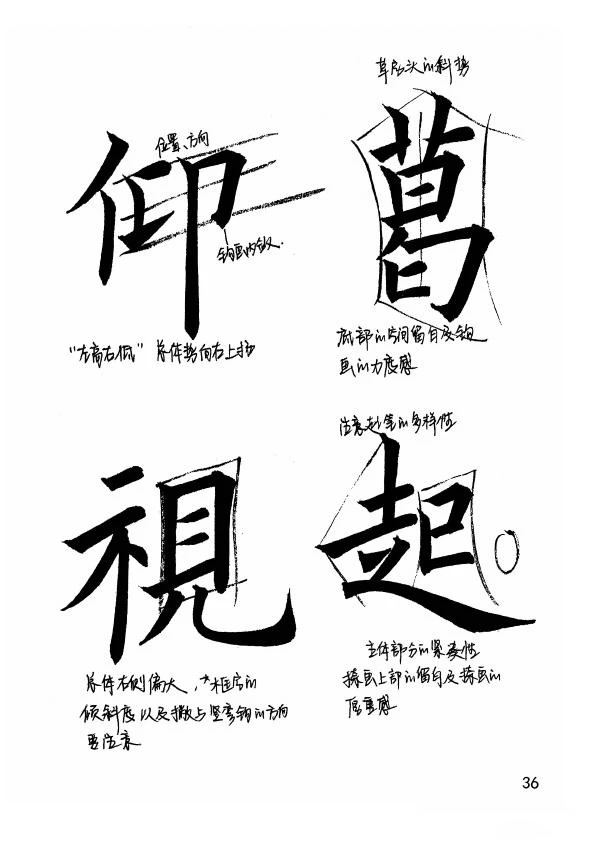 草字头的斜势
位置、方向
仰
葛
钩画内敛.
"左高右低" 总体势向右上扬
底部的空间留白及钩
画的力度感
注意起笔的多样性
視
起
总体右侧偏大,
框字的
倾斜度以及撇与竖弯钩的方向
要注意
主体部分的紧凑性
捺画上部的留白及捺画的
厚重感
36